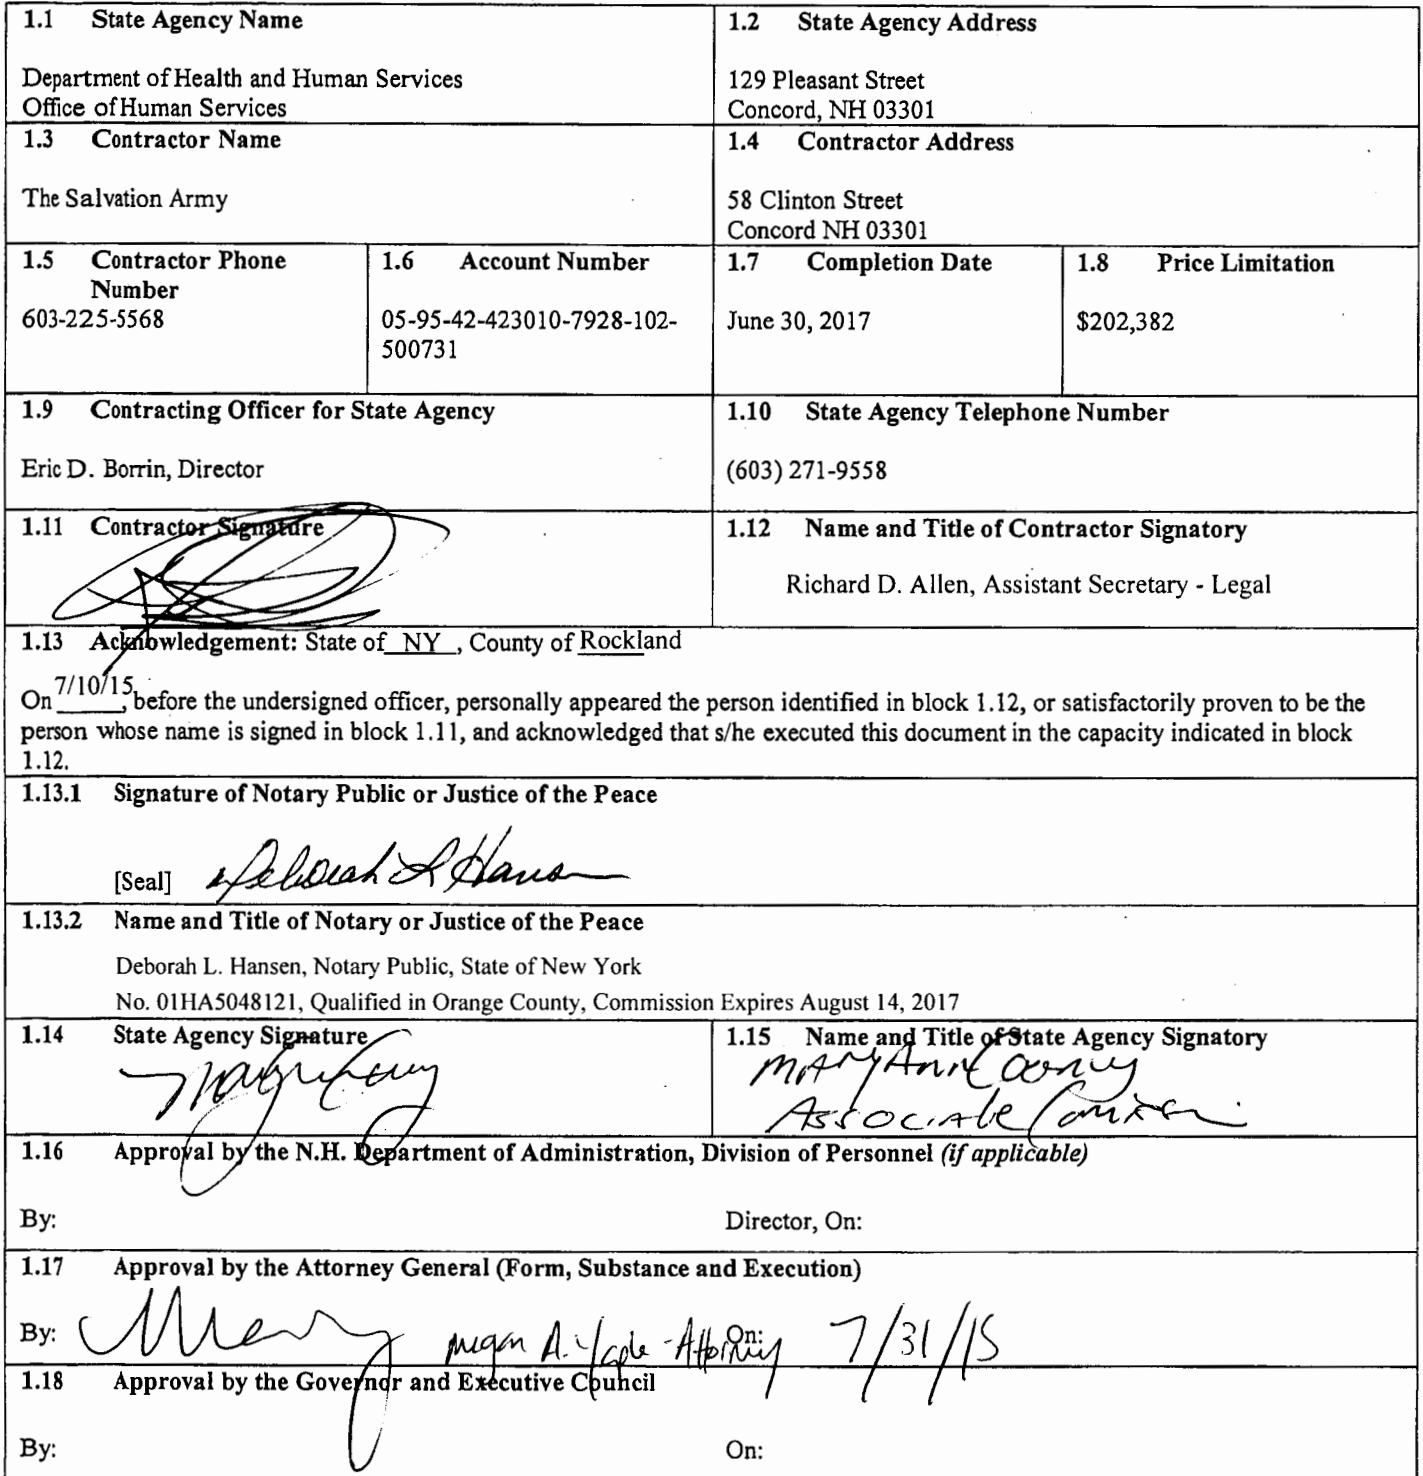 1.1 State Agency Name
Department of Health and Human Services
Office of Human Services
1.2 State Agency Address
129 Pleasant Street
Concord, NH 03301
1.3 Contractor Name
The Salvation Army
1.4 Contractor Address
58 Clinton Street
Concord NH 03301
1.5 Contractor Phone
Number
603-225-5568
1.6 Account Number
05-95-42-423010-7928-102-
500731
1.7 Completion Date
June 30, 2017
1.8 Price Limitation
$202,382
1.9 Contracting Officer for State Agency
Eric D. Borrin, Director
1.10 State Agency Telephone Number
(603) 271-9558
1.11 Contractor Signature
1.12 Name and Title of Contractor Signatory
Richard D. Allen, Assistant Secretary - Legal
1.13 Acknowledgement: State of NY , County of Rockland
On 7/10/15, before the undersigned officer, personally appeared the person identified in block 1.12, or satisfactorily proven to be the
person whose name is signed in block 1.11, and acknowledged that s/he executed this document in the capacity indicated in block
1.12.
1.13.1 Signature of Notary Public or Justice of the Peace
[Seal] Deborah L Hansen
1.13.2 Name and Title of Notary or Justice of the Peace
Deborah L. Hansen, Notary Public, State of New York
No. 01HA5048121, Qualified in Orange County, Commission Expires August 14, 2017
1.14 State Agency Signature
1.15 Name and Title of State Agency Signatory
Mary Ann Cooney
Associate
1.16 Approval by the N.H. Department of Administration, Division of Personnel (if applicable)
By: Director, On:
1.17 Approval by the Attorney General (Form, Substance and Execution)
By: Megan A. - Attorney On: 7/31/15
1.18 Approval by the Governor and Executive Council
By: On: